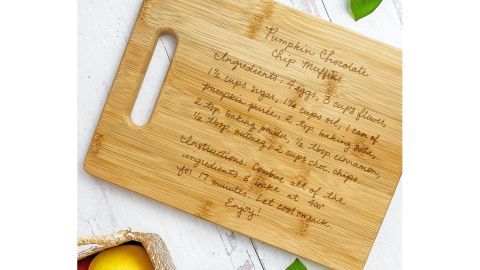 Pumpkin Chocolate
Chip Muffins
Ingredients: 4 eggs, 3 cups flower,
1½ cups sugar, 1½ cups oil, 1 can of
pumpkin puree, 2 tsp baking soda,
2 tsp baking powder, ½ tbsp cinnamon,
¼ tbsp nutmeg, 2 cups choc chips
Instructions: Combine all of the
ingredients & bake at 400°
for 17 minutes. Let cool on rack.
Enjoy!